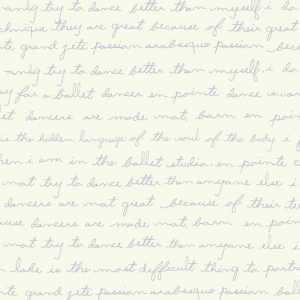 try to dance better than myself. i do
technique they are great because of their great
grand jete passion arabesque passion because
try to dance better than myself. i do
for a ballet dancer en pointe dance is
dancers are mat, barn en poin
is the hidden language of the soul of the body i
when i am in the ballet studio en pointe
mat try to dance better than anyone else
dancers are mat great because of their
dancers are made mat barn en poin
mat try to dance better than anyone else
lake is the most difficult thing to
grand jete passion arabesque passion bal